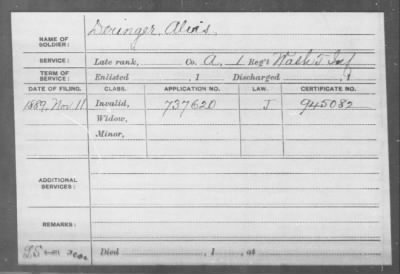 NAME OF SOLDIER: Deringer, Alvis.
SERVICE: Late rank, Co. A, 1 Reg't Wash T Inf
TERM OF SERVICE: Enlisted , 1 Discharged , 1
DATE OF FILING. CLASS. APPLICATION NO. LAW. CERTIFICATE NO.
1889, Nov. 11 Invalid, 737620 J 945082
Widow,
Minor,
ADDITIONAL SERVICES:
REMARKS:
Died , 1 , at